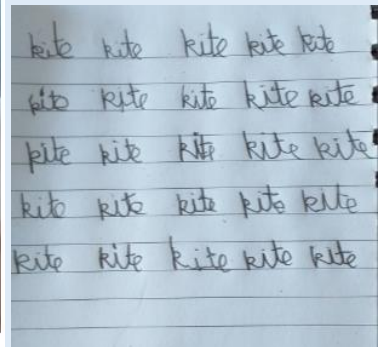 kite kite kite kite kite
kite kite kite kite kite
kite kite kite kite kite
kite kite kite kite kite
kite kite kite kite kite